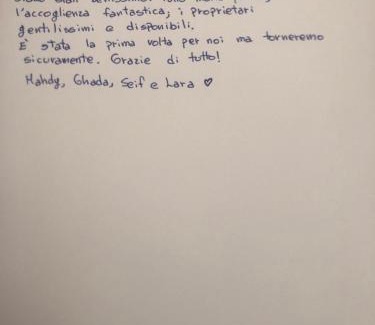 l'accoglienza fantastica; i proprietari
gentilissimi e disponibili.
È stata la prima volta per noi ma torneremo
sicuramente. Grazie di tutto!
Mahdy, Ghada, Seif e Lara ♡